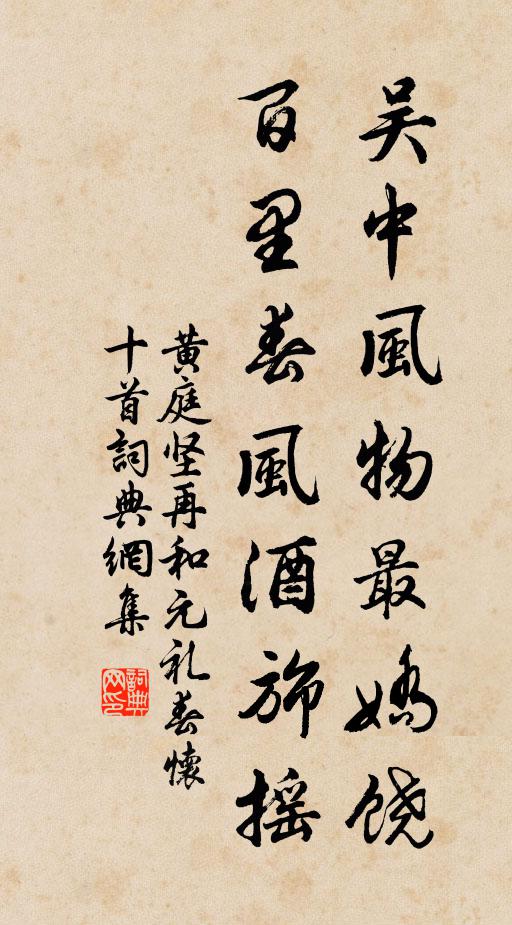 吴中風物最嬌饶
百里春風酒斾摇
黄庭坚再和元礼春懷
十首詞典網集
詞典网印